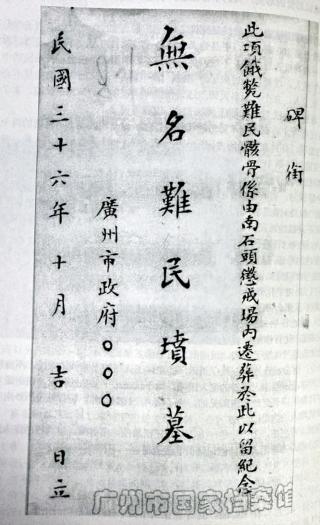 碑銜
此項餓斃難民骸骨係由南石頭懲戒場內遷葬於此以留紀念
無名難民墳墓
廣州市政府〇〇〇
民國三十六年十月吉日立
广州市国家档案馆